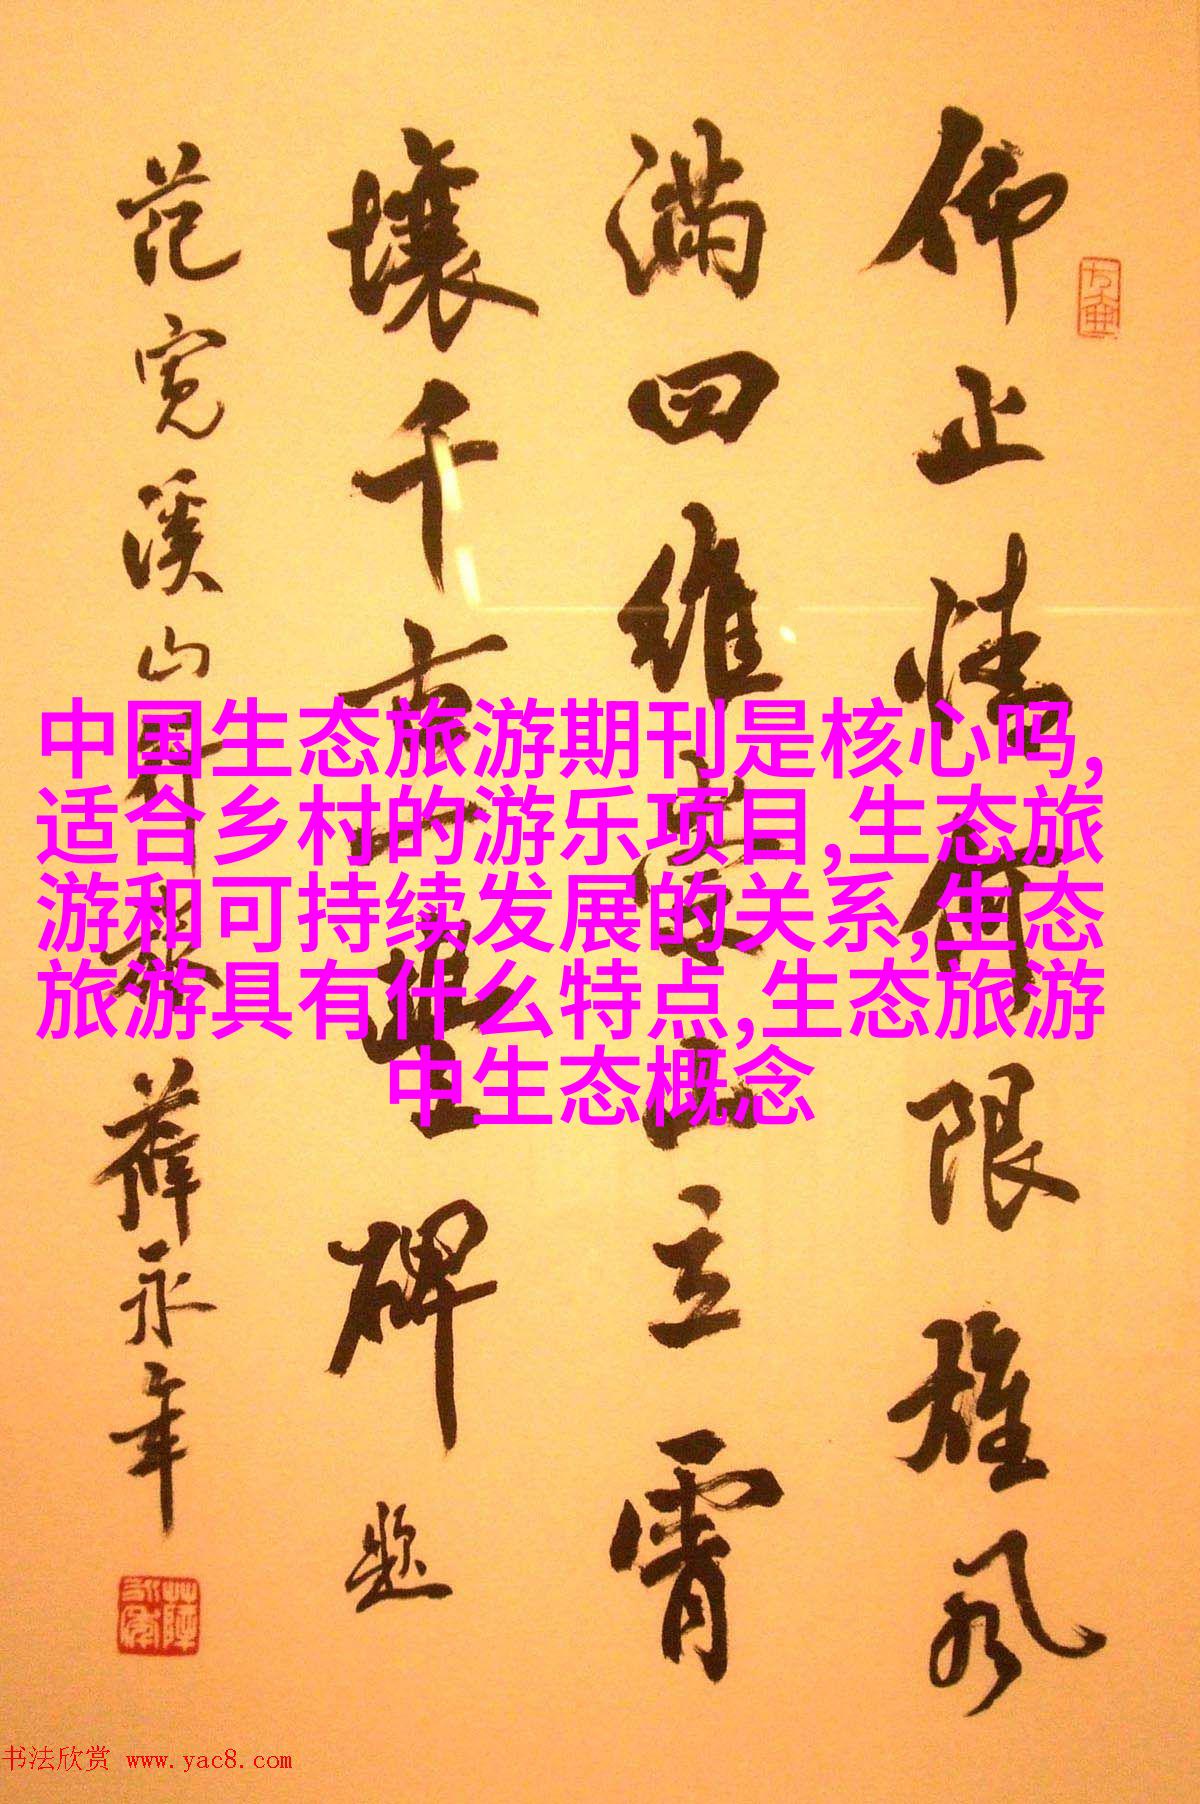 仰止情有限雄风
满四维崇山立霄
壤千古一豐碑题
范宽溪山行旅薛永年
中国生态旅游期刊是核心吗,
适合乡村的游乐项目,生态旅
游和可持续发展的关系,生态
旅游具有什么特点,生态旅游
中生态概念
书法欣赏 www.yac8.com